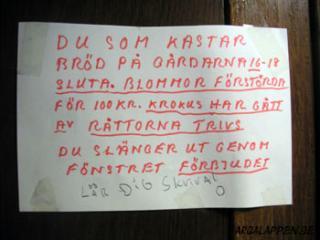 DU SOM KASTAR
BRÖD PÅ GÅRDARNA 16-18
SLUTA. BLOMMOR FÖRSTÖRDA
FÖR 100KR. KROKUS HAR GÅTT
AV RÅTTORNA TRIVS
DU SLÄNGER UT GENOM
FÖNSTRET FÖRBJUDET
LÄR DIG SKRIVA!
ARGALAPPEN.SE